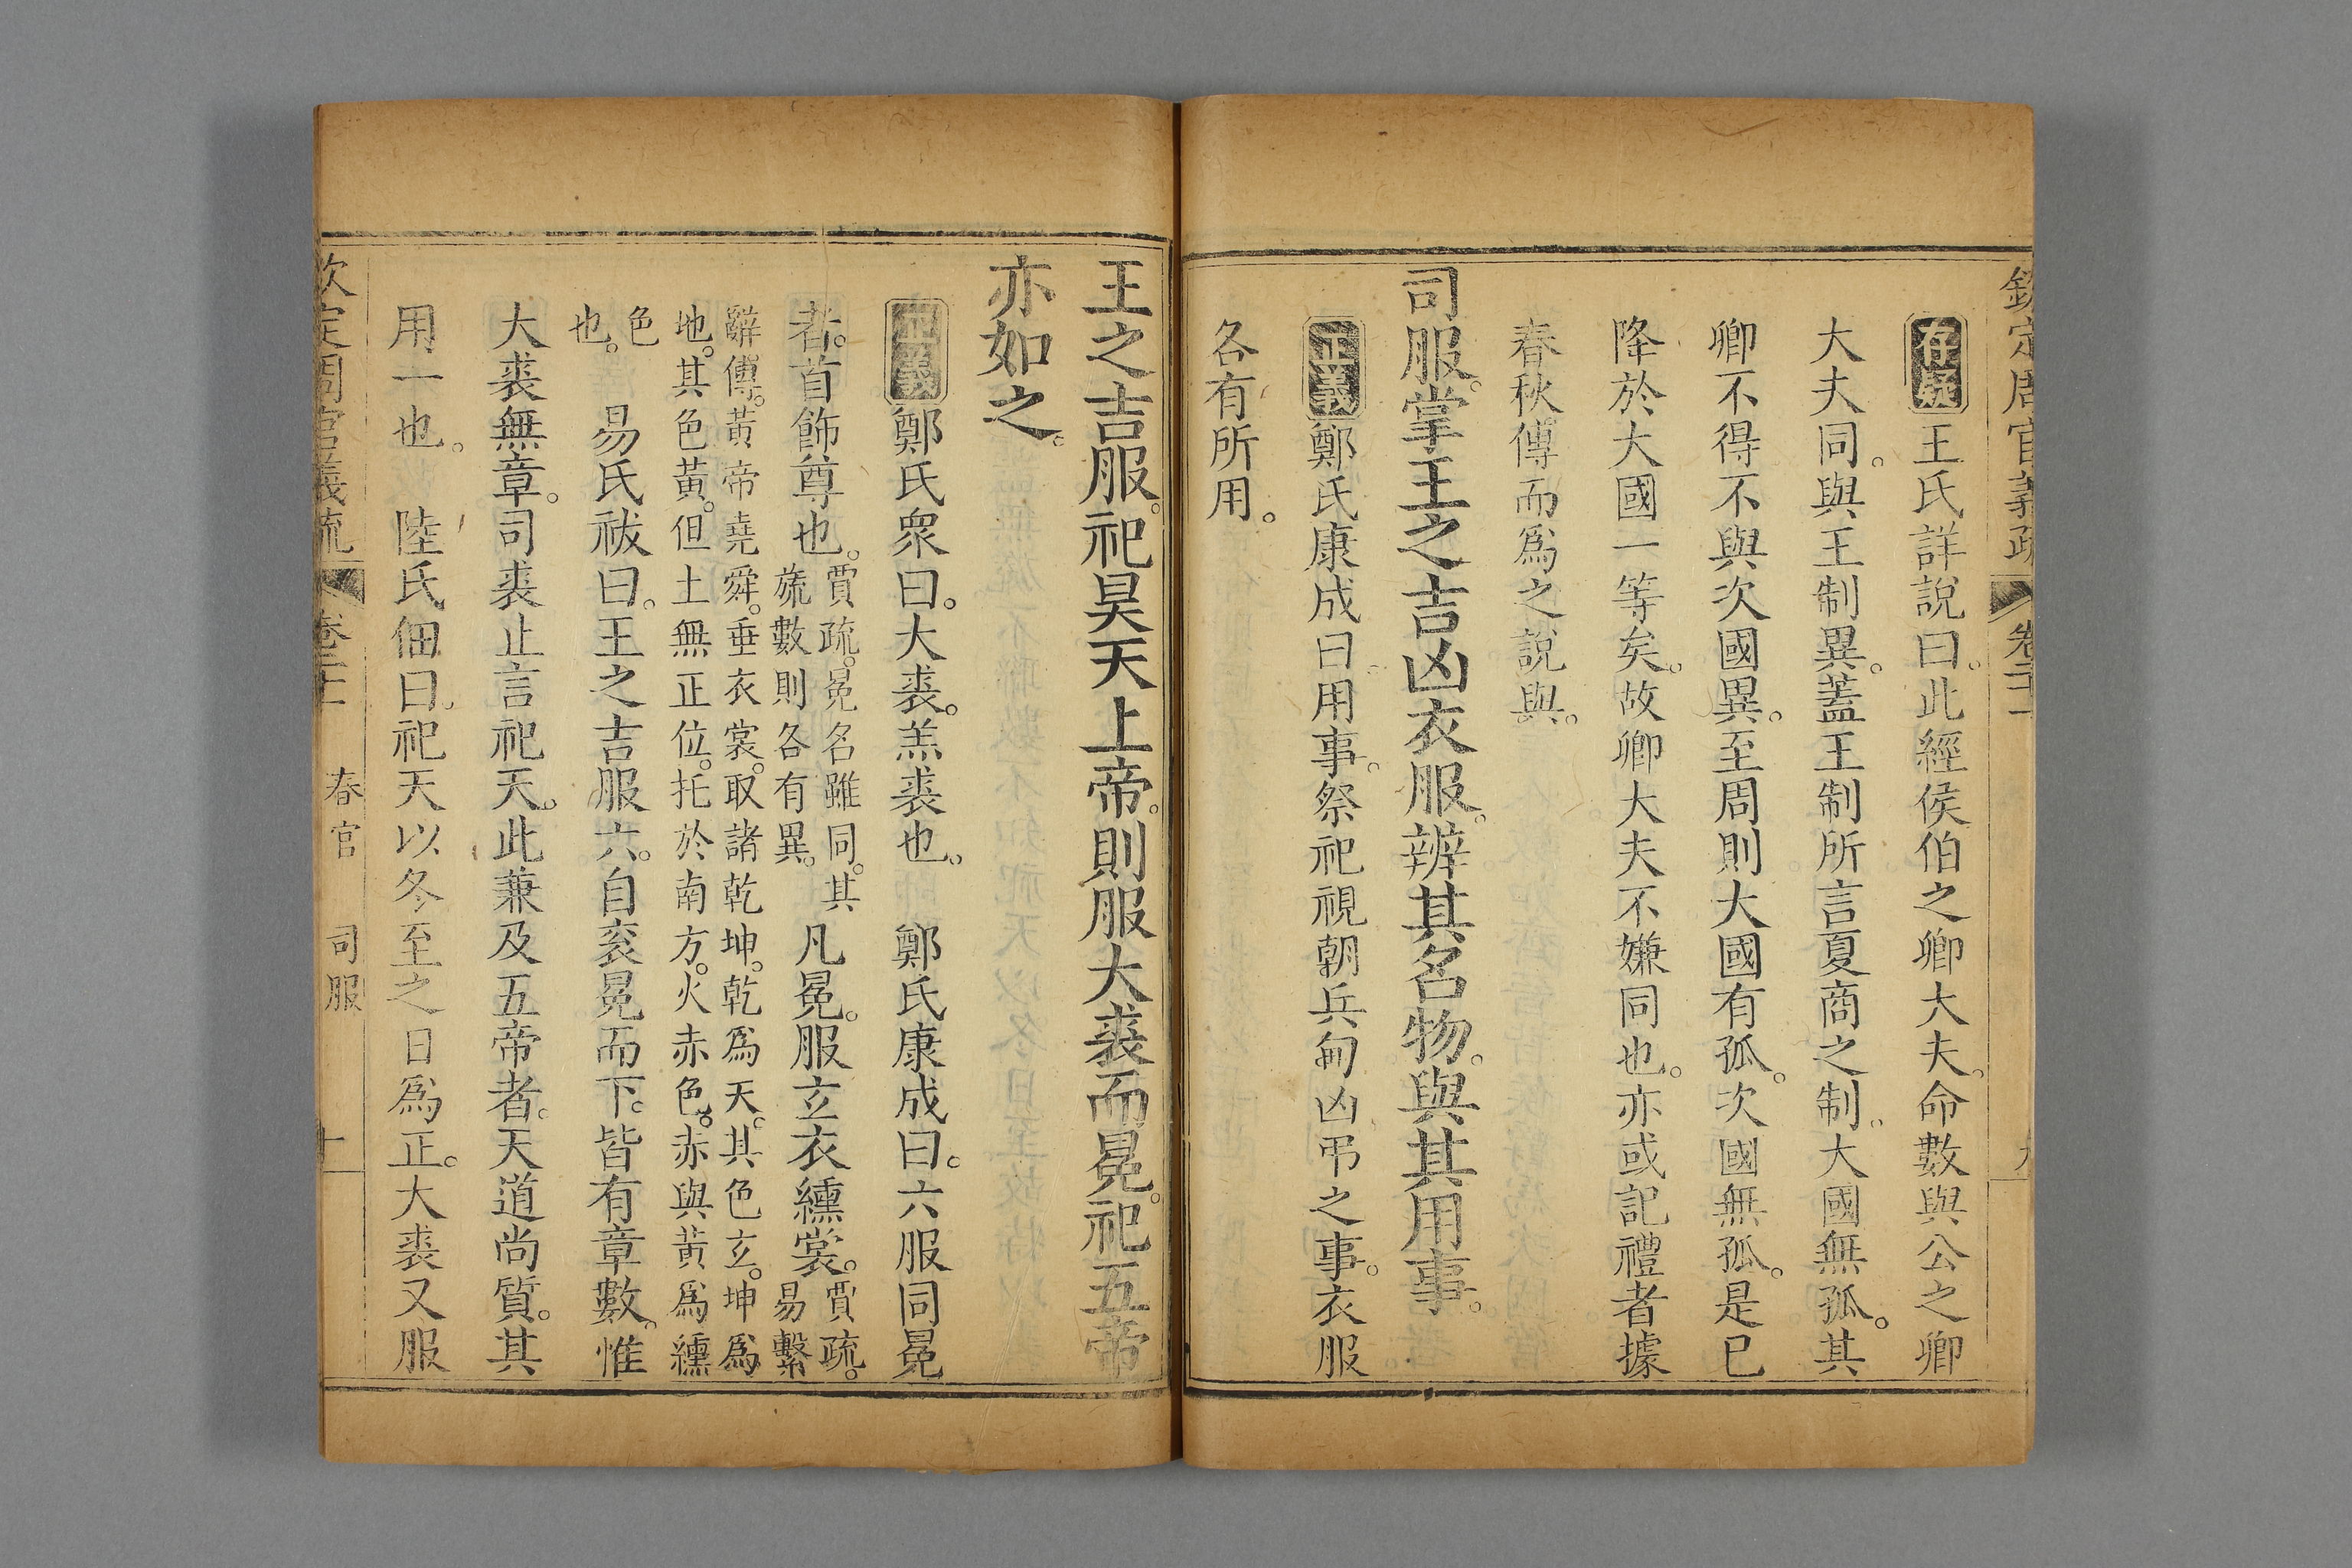 欽定周官義疏 卷二十一 九
存疑 王氏詳說曰。此經侯伯之卿大夫。命數與公之卿
大夫同。與王制異。蓋王制所言夏商之制。大國無孤。其
卿不得不與次國異。至周則大國有孤。次國無孤。是已
降於大國一等矣。故卿大夫不嫌同也。亦或記禮者據
春秋傳而爲之說與。
司服。掌王之吉凶衣服。辨其名物。與其用事。
正義 鄭氏康成曰。用事。祭祀視朝兵甸凶弔之事。衣服
各有所用。
王之吉服。祀昊天上帝。則服大裘而冕。祀五帝
亦如之。
正義 鄭氏衆曰。大裘。羔裘也。 鄭氏康成曰。六服同冕
者。首飾尊也。賈疏。冕名雖同。其
旒數則各有異。 凡冕。服玄衣纁裳。賈疏。
易繫
辭傳。黃帝堯舜。垂衣裳。取諸乾坤。乾爲天。其色玄。坤爲
地。其色黃。但土無正位。托於南方。火赤色。赤與黃爲纁
色
也。 易氏祓曰。王之吉服六。自衮冕而下。皆有章數。惟
大裘無章。司裘止言祀天。此兼及五帝者。天道尚質。其
用一也。 陸氏佃曰。祀天以冬至之日爲正。大裘又服
欽定周官義疏 卷二十一 春官 司服 十